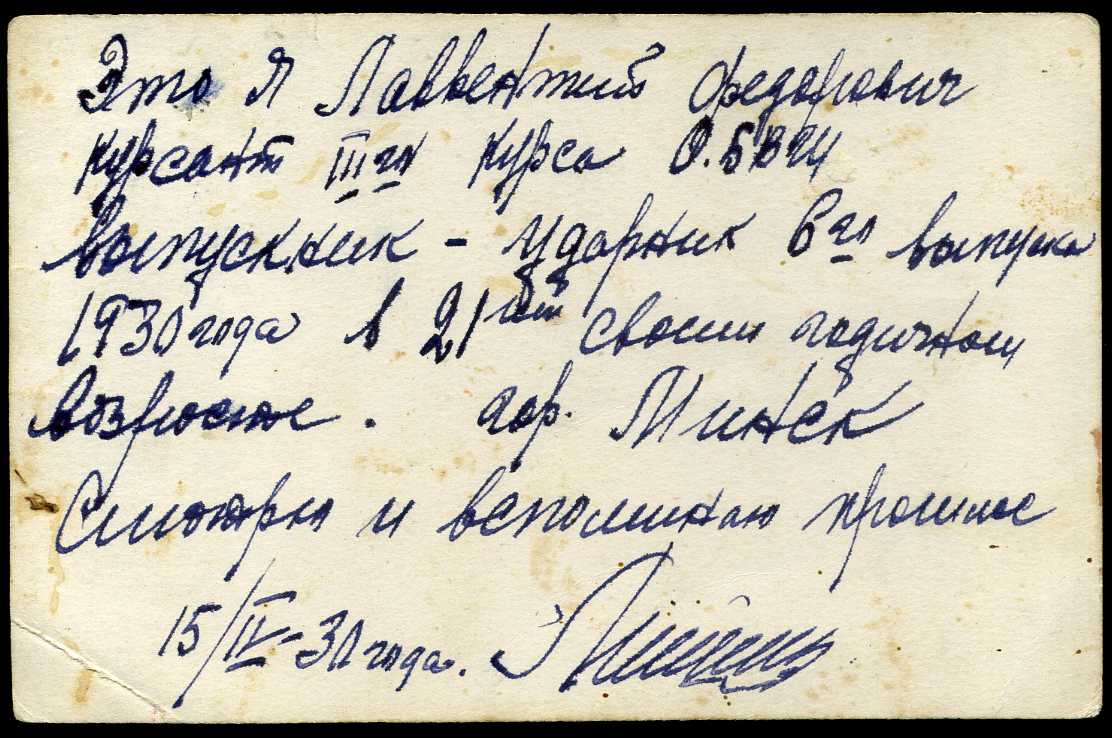 Это я Лаврентий Федорович
курсант III го курса О.БВЦ
выпускник - ударник 6го выпуска
1930 года в 21 своем годичном
возрасте. гор. Минск
Смотрю и вспоминаю прошлое
15/IV-30 года.